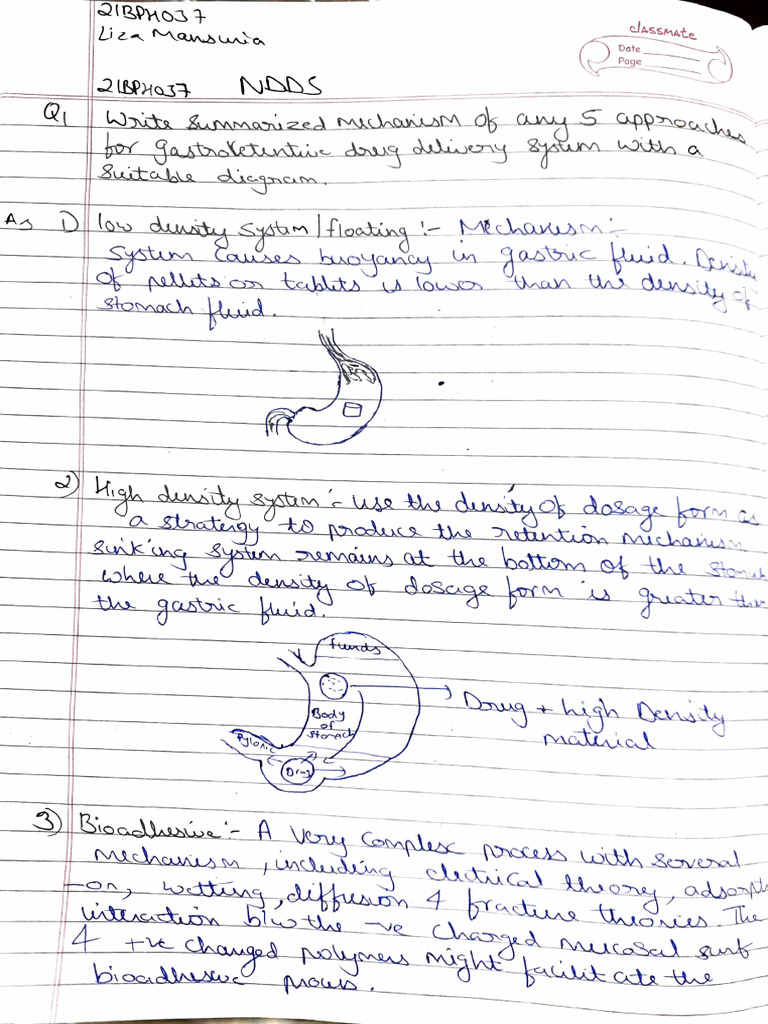 21BPH037
Liza Mansuria
classmate
Date
Page
21BPH037 NDDS
Q1 Write summarized mechanism of any 5 approaches
for gastroretentive drug delivery system with a
suitable diagram.
As 1) low density system/floating :- Mechanism :-
System causes buoyancy in gastric fluid. Density
of pellets or tablets is lower than the density of
stomach fluid.
2) High density system :- use the density of dosage form as
a stratergy to produce the retention mechanism
sinking system remains at the bottom of the stomach
where the density of dosage form is greater than
the gastric fluid.
funds
Body
of
stomach
Pyloric
Drug
Drug + high Density
material
3) Bioadhesive :- A very complex process with several
mechanism, including electrical theory, adsorpti
-on, wetting, diffusion & fracture theories. The
interaction b/w the -ve charged mucosal surf
& +ve changed polymers might facilitate the
bioadhesive process.